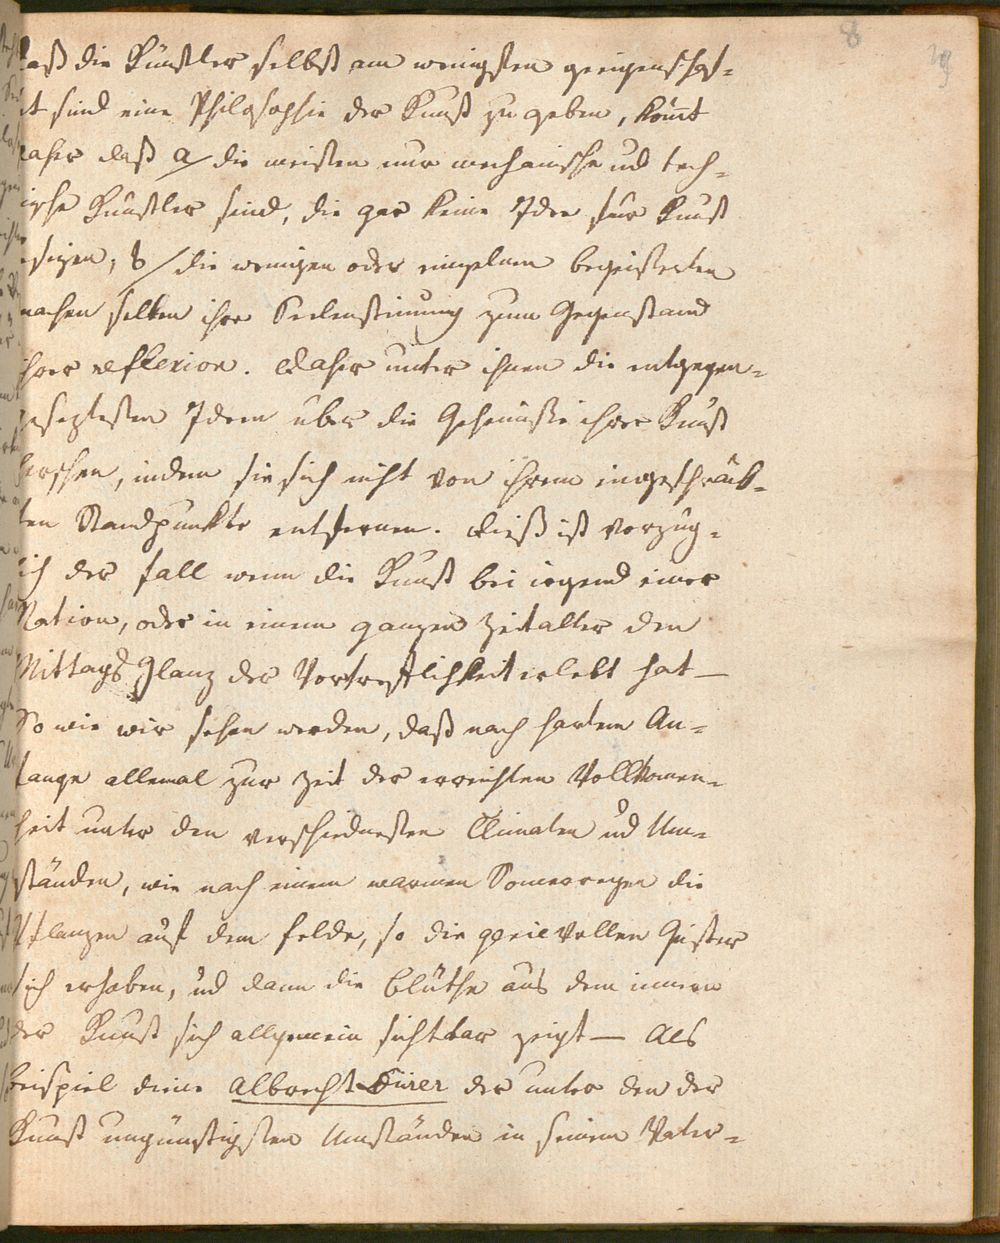 8
daß die Künstler selbst am wenigsten geeigenschaf-
t sind eine Philosophie der Kunst zu geben, kömt
daher daß a/ die meisten nur mechanische ud tech-
nische Künstler sind, die gar keine Idee für Kunst
besizen, b/ die wenigen oder einzelnen begeisterten
machen selten ihre Seelenstimung zum Gegenstand
ihrer reflexion. Daher unter ihnen die entgegen-
gesezstesten Ideen über die Geheimniße ihrer Kunst
herschen, indem sie sich nicht von ihrem eingeschränk-
ten Standpunkte entfernen. Dieß ist vorzüg-
lich der fall wenn die Kunst bei irgend einer
Nation, oder in einem ganzen Zeitalter den
Mittags Glanz der Vortreflichkeit erlebt hat —
So wie wir sehen werden, daß nach hartem An-
fange allemal zur Zeit der erreichten Vollkomen-
heit unter den verschiedensten Climaten ud Um-
ständen, wie nach einem warmen Somerregen die
Pflanzen auf dem felde, so die genievollen Geister
sich erhoben, ud dann die blüthe aus dem innern
der Kunst sich allgemein sichtbar zeigt — Als
beispiel diene Albrecht Dürer der unter den der
Kunst ungünstigsten Umständen in seinem Vater-